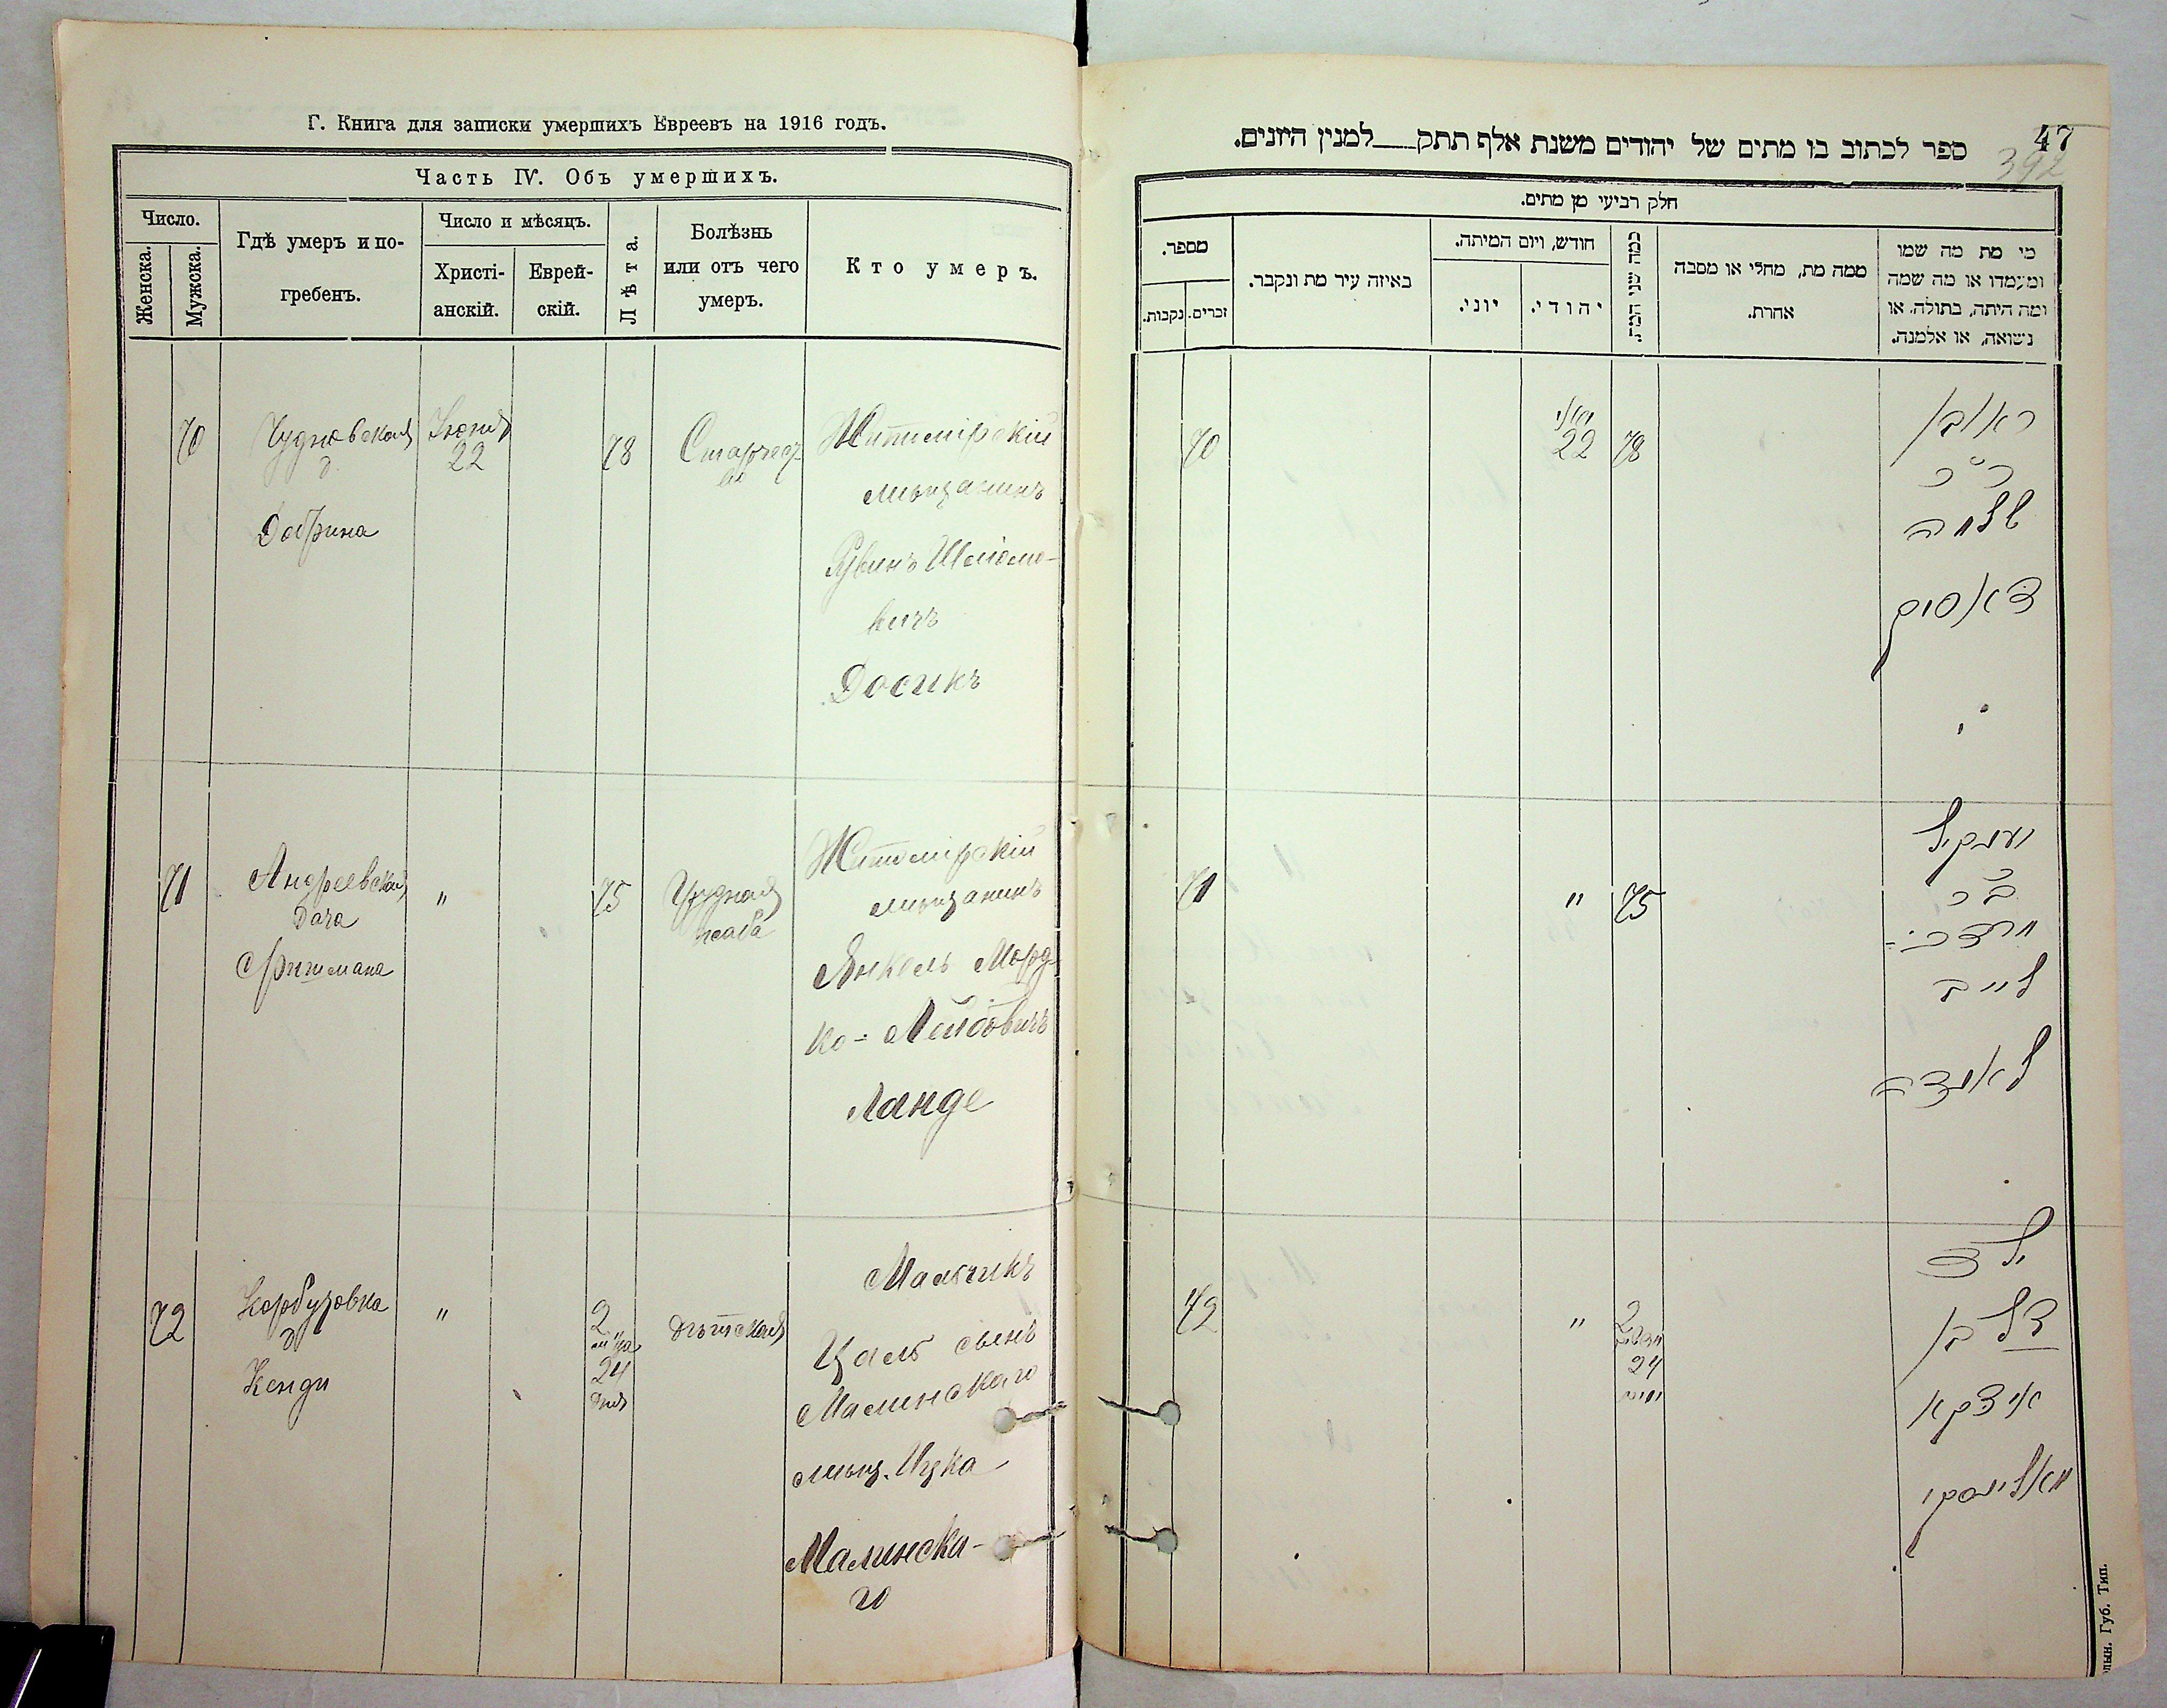 Г. Книга для записки умершихъ Евреевъ на 1916 годъ.
Часть IV. Объ умершихъ.
Число.
Женска.
Мужска.
Гдѣ умеръ и по-
гребенъ.
Число и мѣсяцъ.
Христі-
анскій.
Еврей-
скій.
Лѣта.
Болѣзнь
или отъ чего
умеръ.
Кто умеръ.
70
Чудновская
д.
Добрина
Іюня
22
78
Старчест-
во
Житомірскій
мѣщанинъ
Рувинъ Шлiомо-
вичъ
Досикъ
71
Андреевская
дача
Фришмана
"
75
Грудная
жаба
Житомірскій
мѣщанинъ
Янкель Мордко-
ко-Лейбовичъ
Ланде
72
Корбутовка
д
Кенди
"
2
м-ца
24
дня
дѣтская
Мальчикъ
Цаль сынъ
Малинскаго
мѣщ. Ицка
Малинска-
го
47
392
ספר לכתוב בו מתים של יהודים משנת אלף תתק למנין היונים.
חלק רביעי מן מתים.
מי מת מה שמו
ומעמדו או מה שמה
ומה היתה, בתולה, או
נשואה, או אלמנה.
ממה מת, מחלי או מסבה
אחרת.
כמה שני המת.
חודש, ויום המיתה.
יהודי.
יוני.
באיזה עיר מת ונקבר.
מספר.
זכרים.
נקבות.
ראובן
ב"ר
שלמה
דאסיק
78
יוני
22
70
יענקיל
ב"ר
מרדכי
לייב
לאנדה
75
"
71
ילד
צל בן
איצקא
מאלינסקי
2
חדשים
24
ימים
"
72
Губ. Тип.